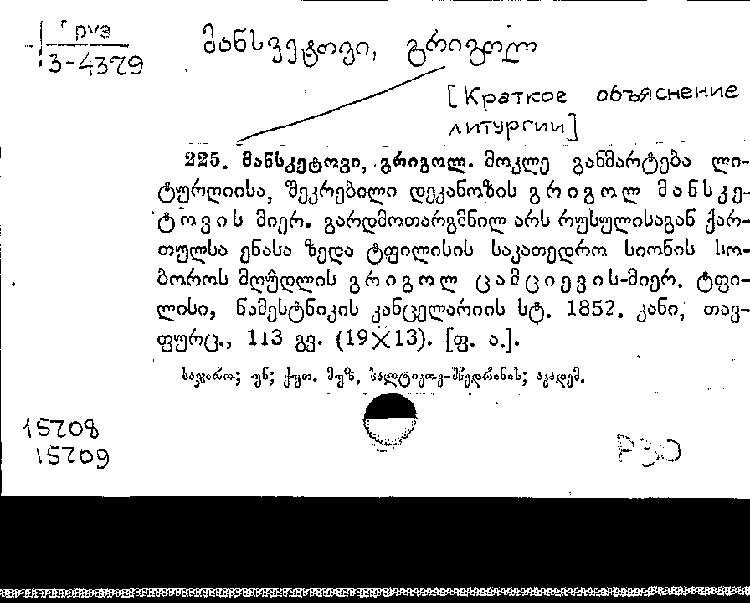 Груз
3-4379
მანსვეტოვი, გრიგოლ
[Краткое объяснение
литургии]
225. მანსკეტოვი, გრიგოლ. მოკლე განმარტება ლი-
ტურღიისა, შეკრებილი დეკანოზის გრიგოლ მანსკე-
ტოვის მიერ. გარდმოთარგმნილ არს რუსულისაგან ქარ-
თულსა ენასა ზედა ტფილისის საკათედრო სიონის სო-
ბოროს მღუდლის გრიგოლ ცამციევის-მიერ. ტფი-
ლისი, ნამესტნიკის კანცელარიის სტ. 1852. კანი, თავ-
ფურც., 113 გვ. (19×13). [ფ. ა.].
საჯარო; უნ; ქუთ. მუზ. სალტიკოვ-შჩედრინის; აკადემ.
15208
15209
P30